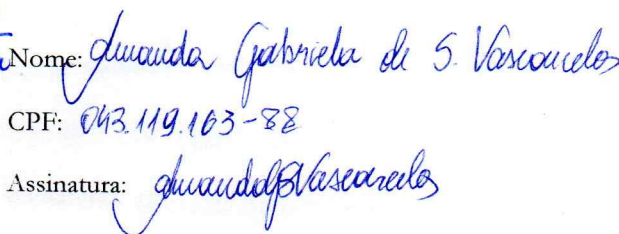 Nome: Amanda Gabriela de S. Vasconcelos
CPF: 043.119.163-88
Assinatura: AmandaGSVasconcelos